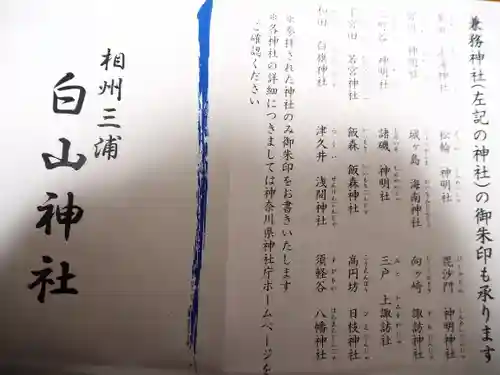 兼務神社(左記の神社)の御朱印も承ります
松輪 神明社
毘沙門 神明神社
神明社
城ヶ島 海南神社
向ヶ崎 諏訪神社
神明社
諸磯 神明社
三戸 上諏訪社
下宮田 若宮神社
飯森 飯森神社
高円坊 日枝神社
和田 白旗神社
津久井 浅間神社
須軽谷 八幡神社
※参拝された神社のみ御朱印をお書きいたします
※各神社の詳細につきましては神奈川県神社庁ホームページを
ご確認ください
相州三浦
白山神社